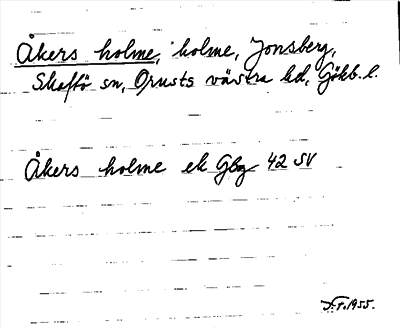 Åkers holme, holme, Jonsberg,
Skaftö sn, Orusts västra hd, Gökb. l.
Åkers holme ek Gbg 42 SV
1955.